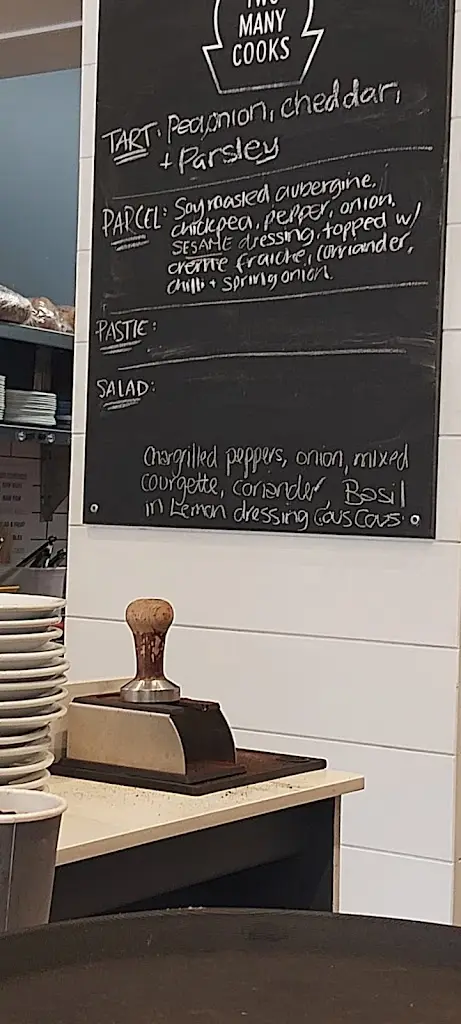 TWO
MANY
COOKS
TART: Pea, onion, cheddar,
+ Parsley
PARCEL: Soy roasted aubergine,
chickpea, pepper, onion,
SESAME dressing, topped w/
crème fraiche, corriander,
chilli + spring onion.
PASTIE:
SALAD:
Chargrilled peppers, onion, mixed
courgette, coriander, Basil
in Lemon dressing Cous Cous.